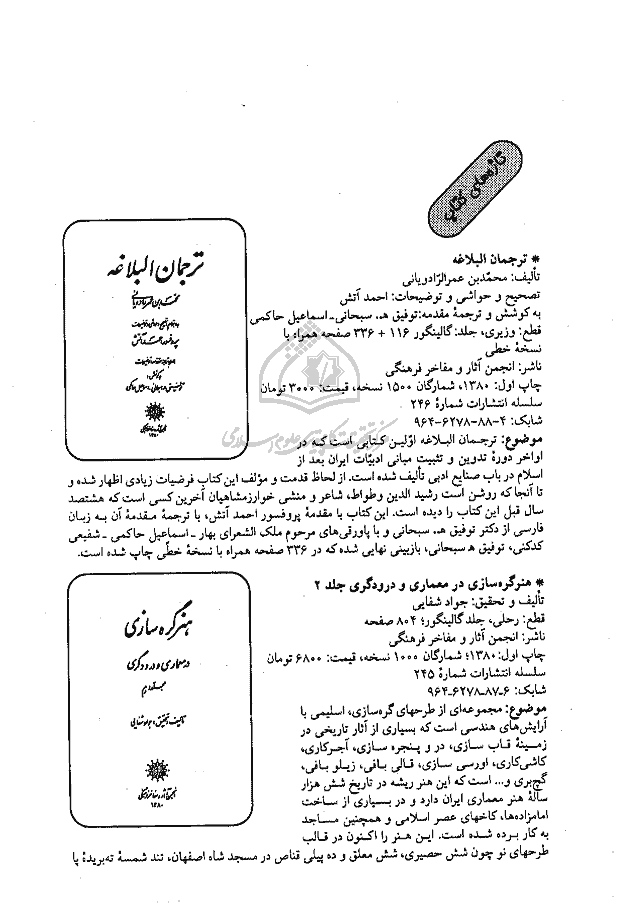 تازه‌های کتاب
* ترجمان البلاغه
تألیف: محمّدبن عمرالرّادویانی
تصحیح و حواشی و توضیحات: احمد آتش
به کوشش و ترجمهٔ مقدمه: توفیق هـ. سبحانی ـ اسماعیل حاکمی
قطع: وزیری، جلد: گالینگور ۱۱۶ + ۳۳۶ صفحه همراه با
نسخهٔ خطی ـ
ناشر: انجمن آثار و مفاخر فرهنگی
چاپ اول: ۱۳۸۰، شمارگان ۱۵۰۰ نسخه، قیمت: ۳۰۰۰ تومان
سلسله انتشارات شمارهٔ ۲۴۶
شابک: ۴-۸۸-۶۲۷۸-۹۶۴
موضوع: ترجمان البلاغه اوّلین کتابی است که در
اواخر دورهٔ تدوین و تثبیت مبانی ادبیّات ایران بعد از
اسلام در باب صنایع ادبی تألیف شده است. از لحاظ قدمت و مؤلف این کتاب فرضیات زیادی اظهار شده و
تا آنجا که روشن است رشید الدین وطواط، شاعر و منشی خوارزمشاهیان آخرین کسی است که هشتصد
سال قبل این کتاب را دیده است. این کتاب با مقدمهٔ پروفسور احمد آتش، با ترجمهٔ مقدمهٔ آن به زبان
فارسی از دکتر توفیق هـ. سبحانی و با پاورقی‌های مرحوم ملک الشعرای بهار ـ اسماعیل حاکمی ـ شفیعی
کدکنی، توفیق هـ سبحانی، بازبینی نهایی شده که در ۳۳۶ صفحه همراه با نسخهٔ خطّی چاپ شده است.
ترجمان البلاغه
* هنرگره‌سازی در معماری و درودگری جلد ۲
تألیف و تحقیق: جواد شفایی
قطع: رحلی، جلد گالینگور؛ ۸۰۴ صفحه
ناشر: انجمن آثار و مفاخر فرهنگی
چاپ اول: ۱۳۸۰؛ شمارگان ۱۰۰۰ نسخه، قیمت: ۶۸۰۰ تومان
سلسله انتشارات شمارهٔ ۲۴۵
شابک: ۶-۸۷-۶۲۷۸-۹۶۴
موضوع: مجموعه‌ای از طرحهای گره‌سازی، اسلیمی با
آرایش‌های هندسی است که بسیاری از آثار تاریخی در
زمینهٔ قاب سازی، در و پنجره سازی، آجرکاری،
کاشی‌کاری، اورسی سازی، قالی بافی، زیلو بافی،
گچ‌بری و... است که این هنر ریشه در تاریخ شش هزار
سالهٔ هنر معماری ایران دارد و در بسیاری از ساخت
امامزاده‌ها، کاخهای عصر اسلامی و همچنین مساجد
به کار برده شده است. این هنر را اکنون در قالب
طرحهای نو چون شش حصیری، شش معلق و ده پیلی قناص در مسجد شاه اصفهان، تند شمسهٔ ته‌بریدهٔ پا
هنر گره سازی
در معماری و درودگری
جلد دوم
تألیف و تحقیق: جواد شفایی
۱۳۸۰